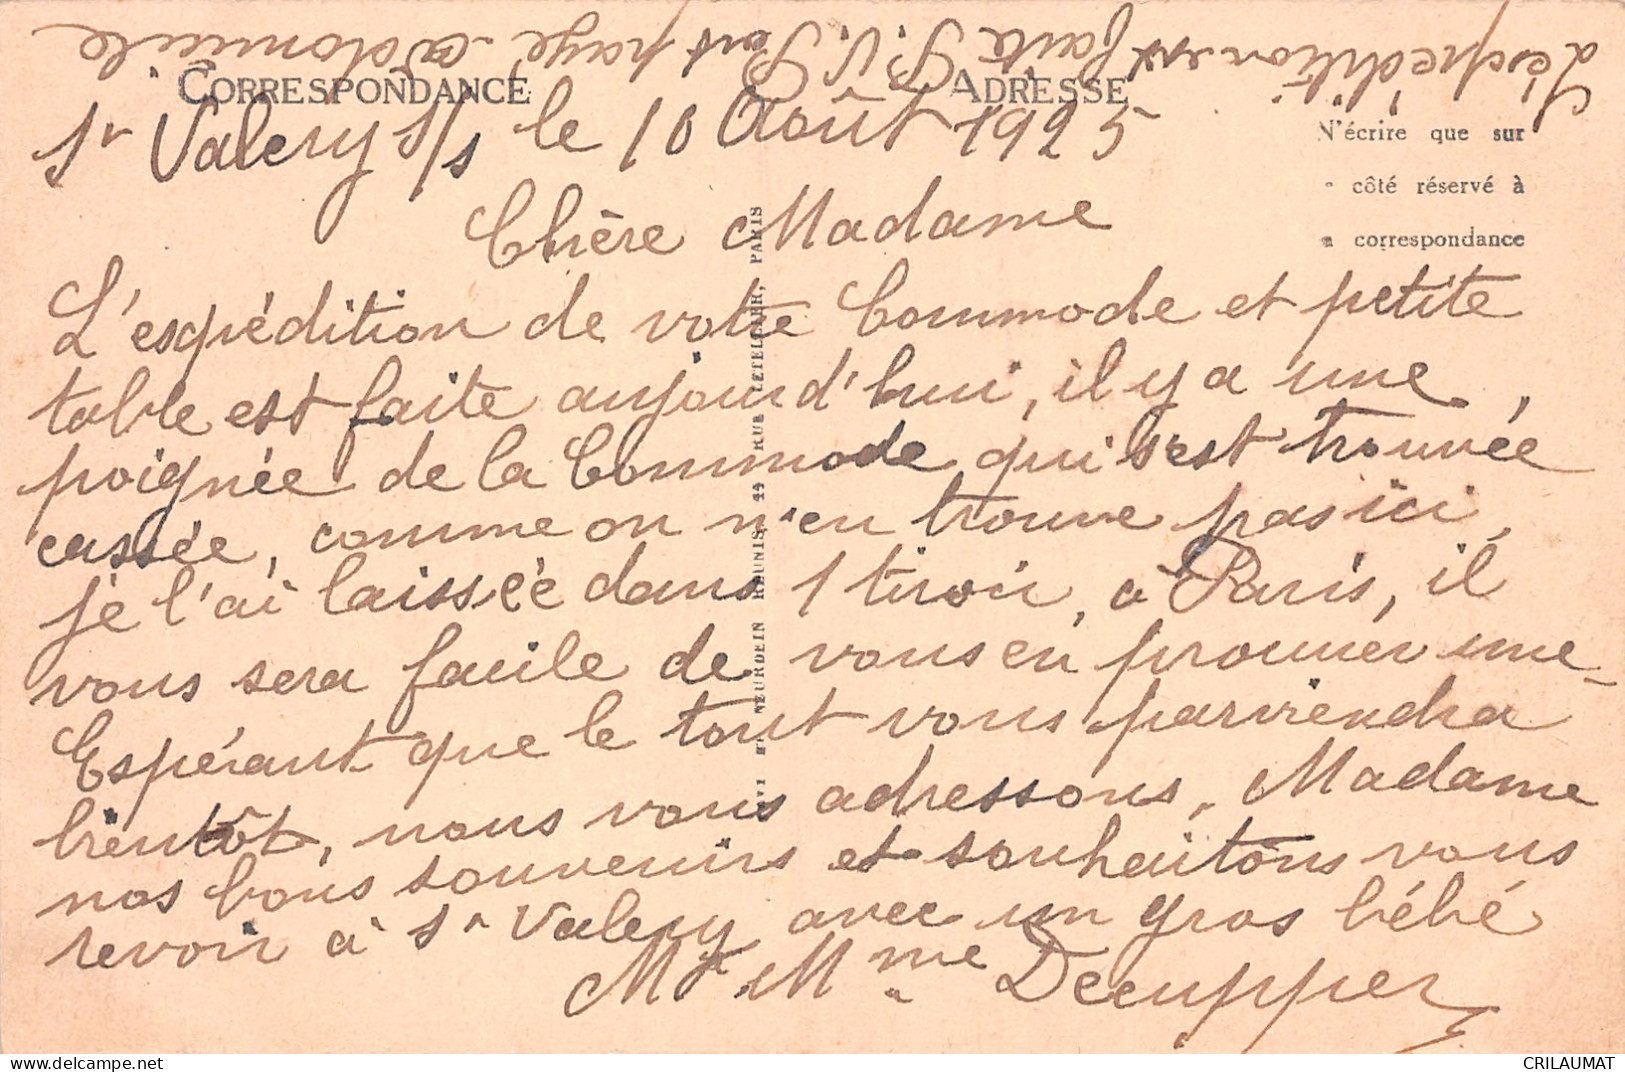 L'expédition est faite P.V. Port payé à domicile
CORRESPONDANCE
ADRESSE
St Valery s/s le 10 Août 1925
N'écrire que sur
côté réservé à
correspondance
Chère Madame
L'expédition de votre Commode et petite
table est faite aujourd'hui, il y a une
poignée de la Commode qui s'est trouvée
cassée, comme on n'en trouve pas ici,
je l'ai laissée dans 1 tiroir, à Paris, il
vous sera facile de vous en prouver une
Espérant que le tout vous parviendra
bientôt, nous vous adressons, Madame
nos bons souvenirs et souhaitons vous
revoir à St Valery avec un gros bébé
Mr Mme Decupper
NEURDEIN RÉUNIS, 44 RUE LETELLIER, PARIS
CRILAUMAT
delcampe.net